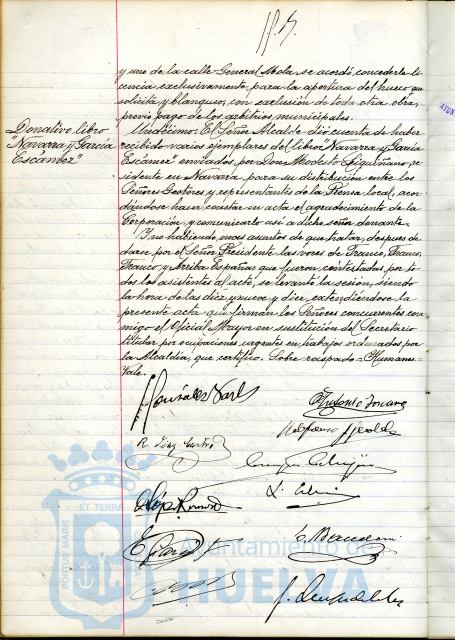 y uno de la calle General Mola, se acordó concederle li-
cencia exclusivamente para la apertura del hueco que
solicita y blanqueo, con exclusión de toda otra obra,
previo pago de los arbitrios municipales.
Donativo libro
"Navarra y García
Escámez"
Undécimo: El Señor Alcalde dió cuenta de haber
recibido varios ejemplares del libro "Navarra y García
Escámez" enviados por Don Modesto re-
sidente en Navarra, para su distribución entre los
Señores Gestores y representantes de la Prensa local, acor-
dándose hacer constar en acta el agradecimiento de la
Corporación y comunicarlo así a dicho señor donante.
Y no habiendo mas asuntos de que tratar, despues de
darse por el Señor Presidente las voces de Franco, Franco,
Franco y Arriba España que fueron contestadas por to-
dos los asistentes al acto, se levantó la sesión, siendo
la hora de las diez y nueve y diez, extendiéndose la
presente acta que firman los Señores concurrentes con-
migo el Oficial Mayor en sustitución del Secretario
titular por ocupaciones urgentes en trabajos ordenados por
la Alcaldía, que certifico. Sobre raspado = Humanes =
Vale.
ET TERRA
PORTUS MARIS
Ayuntamiento de
HUELVA